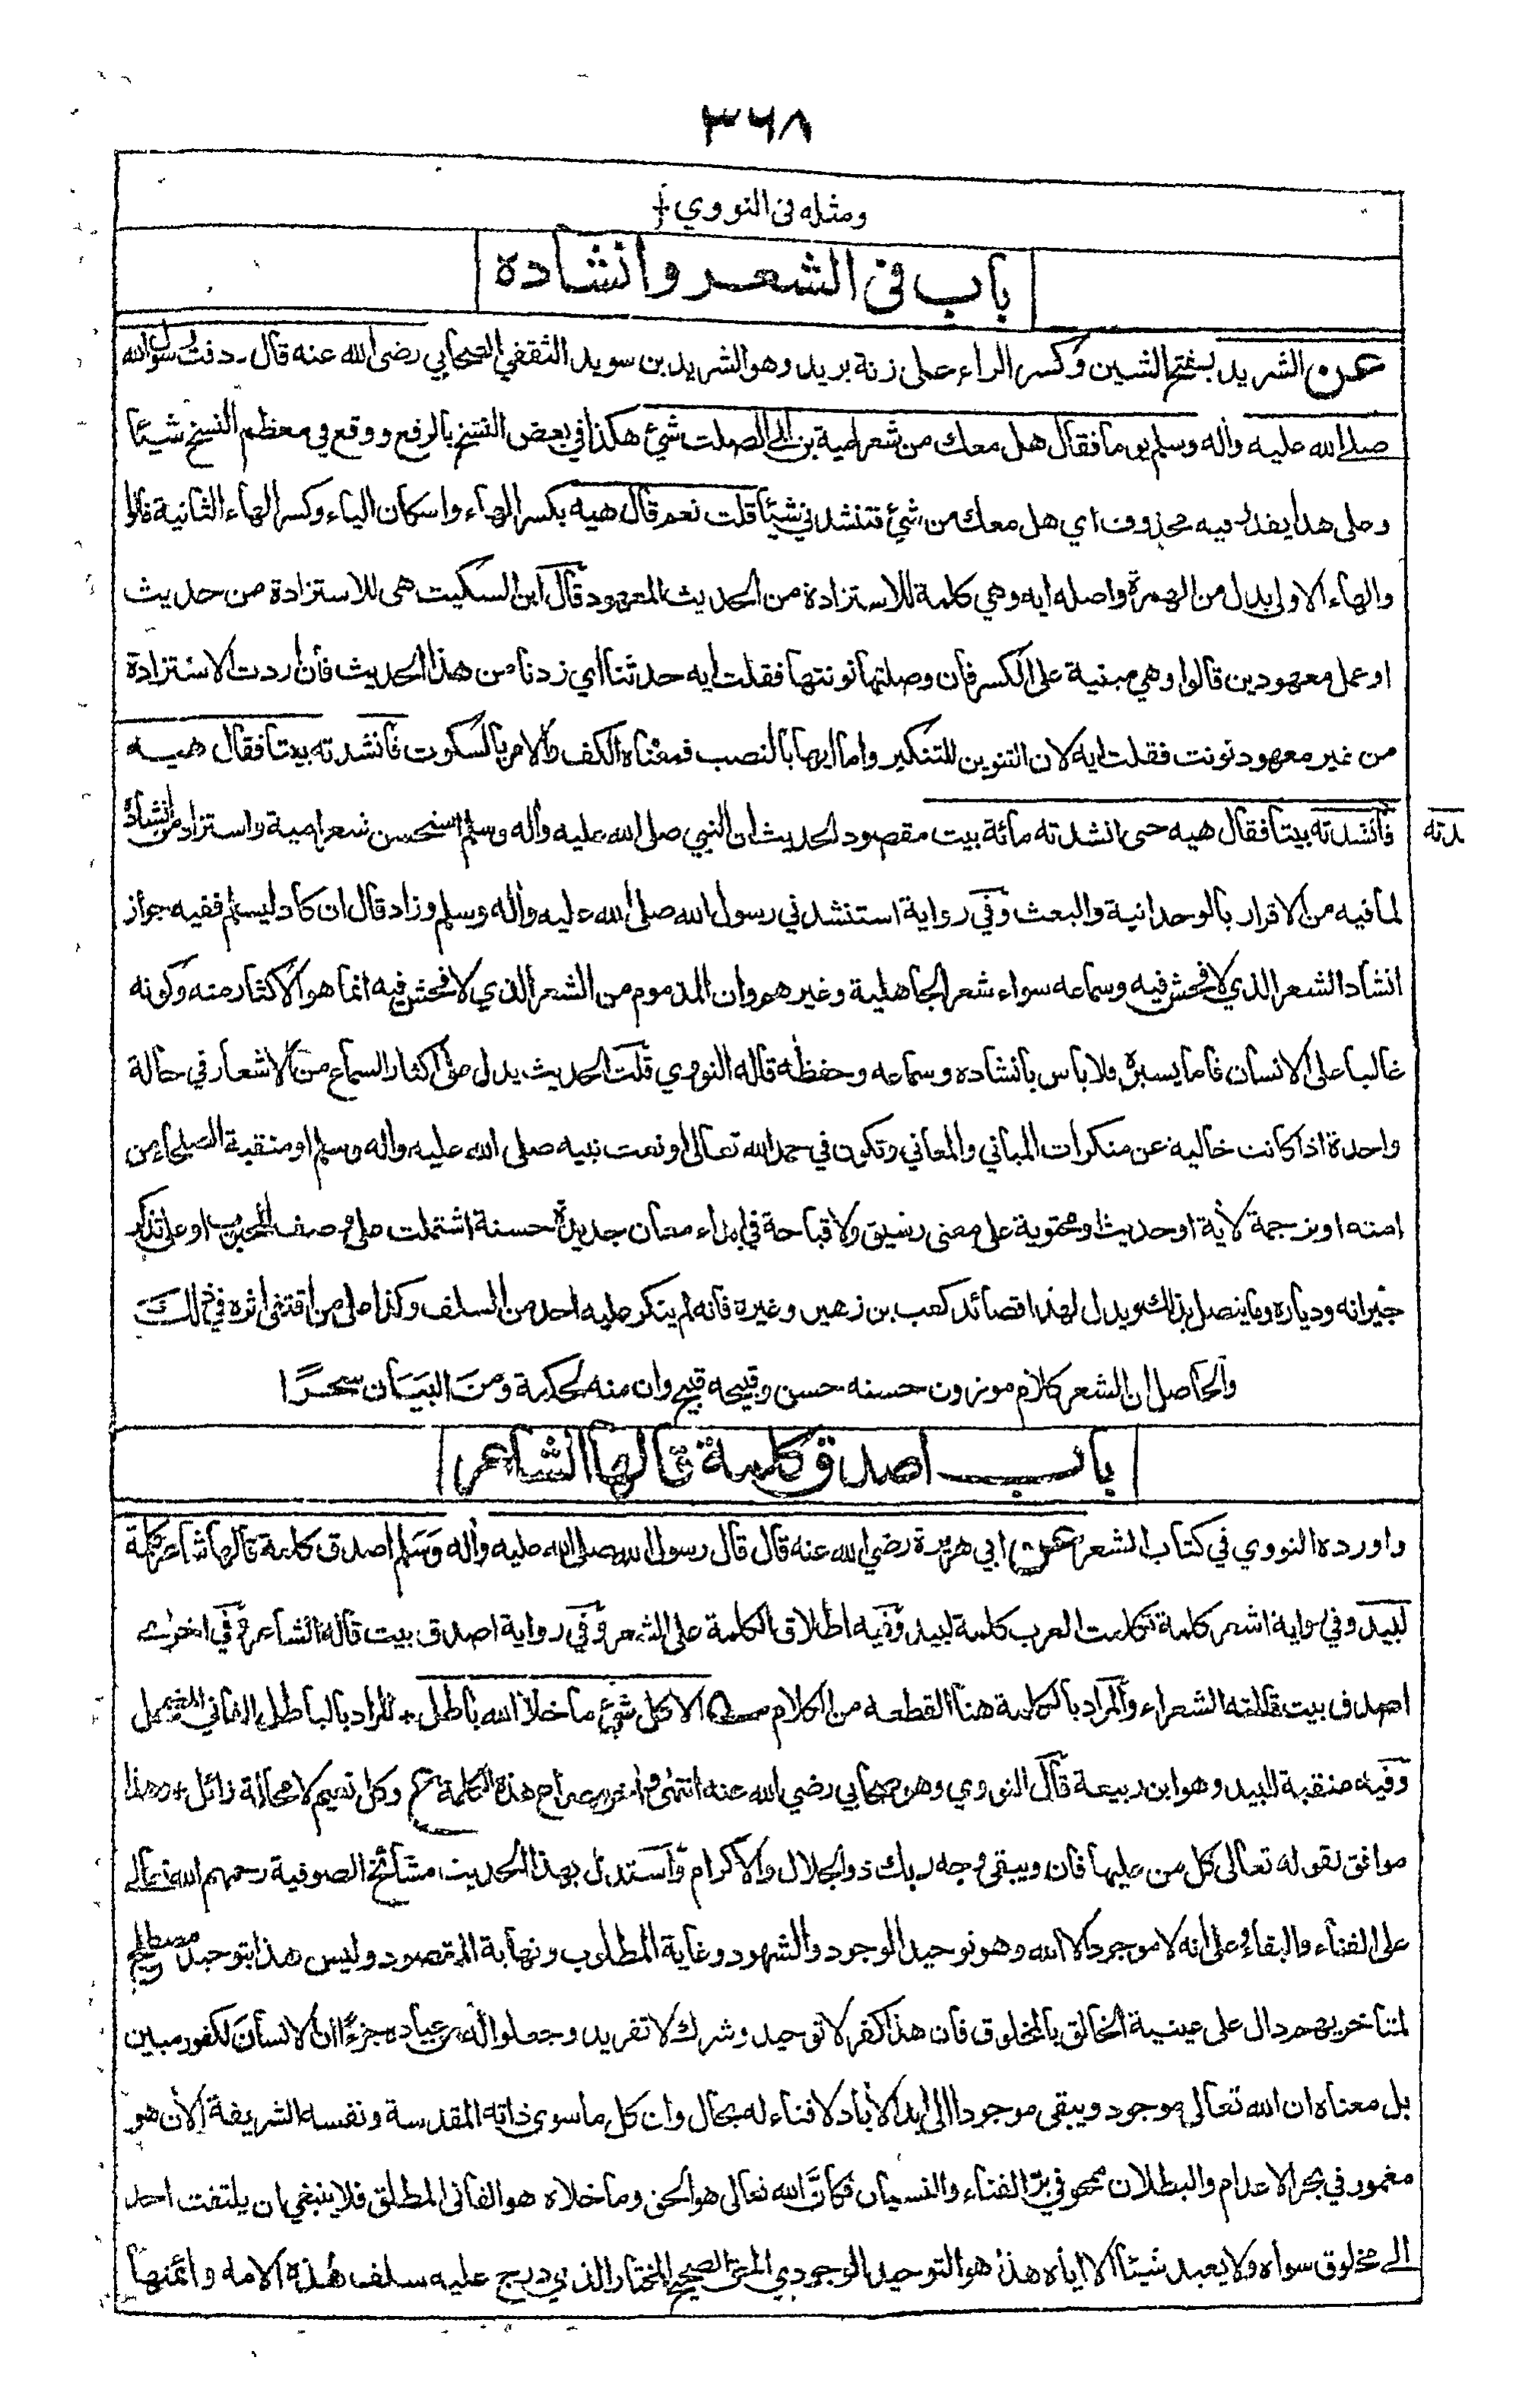 ٣٦٨
ومثله في النووي
باب في الشعر وانشاده
عن الشريد بفتح الشين وكسر الراء على زنة بريد وهو الشريد بن سويد الثقفي الصحابي رضي الله عنه قال ردفت رسول الله
صلى الله عليه وأله وسلم يوما فقال هل معك من شعر امية بن ابي الصلت شئ هكذا في بعض النسخ بالرفع ووقع في معظم النسخ شيئا
وعلى هذا يقدر فيه محذوف اي هل معك من شئ فتنشدني شيئا قلت نعم قال هيه بكسر الهاء واسكان الياء وكسر الهاء الثانية قالوا
والهاء الاولى بدل من الهمزة واصله ايه وهي كلمة للاستزادة من الحديث المعهود قال ابن السكيت هي للاستزادة من حديث
او عمل معهودين قالوا وهي مبنية على الكسر فان وصلتها نونتها فقلت ايه حدثنا اي زدنا من هذا الحديث فان اردت الاستزادة
من غير معهود نونت فقلت ايه لان التنوين للتنكير واما ايها بالنصب فمعناه الكف والامر بالسكوت فانشدته بيتا فقال هيه
فأنشدته بيتا فقال هيه حتى انشدته مائة بيت مقصود الحديث ان النبي صلى الله عليه وأله وسلم استحسن شعر امية واستزاد من انشاده
دته
لما فيه من الاقرار بالوحدانية والبعث وفي رواية استنشدني رسول الله صلى الله عليه وأله وسلم وزاد قال ان كاد ليسلم ففيه جواز
انشاد الشعر الذي لا فحش فيه وسماعه سواء شعر الجاهلية وغيرهم وان المذموم من الشعر الذي لا فحش فيه انما هو الاكثار منه وكونه
غالبا على الانسان فاما يسيره فلا باس بانشاده وسماعه وحفظه قاله النووي قلت الحديث يدل على اكثار السماع من الاشعار في حالة
واحدة اذا كانت خالية عن منكرات المباني والمعاني وتكون في حمد الله تعالى او نعت نبيه صلى الله عليه واله وسلم او منقبة الصلحاء من
امته او ترجمة لأية او حديث او محتوية على معنى رشيق ولا قباحة في ابداء معان جديدة حسنة اشتملت على وصف المحبوب او على تذكر
جيرانه ودياره وما يتصل بذلك ويدل لهذا قصائد كعب بن زهير وغيره فانه لم ينكر عليه احد من السلف وكذا على من اقتفى اثره في ذلك
والحاصل ان الشعر كلام موزون حسنه حسن وقبيحه قبيح وان منه لحكمة ومن البيان سحرا
باب اصدق كلمة قالها الشاعر
واورده النووي في كتاب الشعر عن ابي هريرة رضي الله عنه قال قال رسول الله صلى الله عليه وأله وسلم اصدق كلمة قالها شاعر كلمة
لبيد وفي رواية اشعر كلمة تكلمت العرب كلمة لبيد وفيه اطلاق الكلمة على الشعر وفي رواية اصدق بيت قاله الشاعر وفي اخرى
اصدق بيت قالته الشعراء والمراد بالكلمة هنا القطعة من الكلام الا كل شئ ما خلا الله باطل المراد بالباطل الفاني المضمحل
وفيه منقبة للبيد وهو ابن ربيعة قال النووي وهو صحابي رضي الله عنه انتهى واخر مصراع هذه الكلمة ع وكل نعيم لا محالة زائل وهذا
موافق لقوله تعالى كل من عليها فان ويبقى وجه ربك ذو الجلال والاكرام واستدل بهذا الحديث مشائخ الصوفية رحمهم الله تعالى
على الفناء والبقاء وعلى انه لا موجود الا الله وهو توحيد الوجود والشهود وغاية المطلوب ونهاية المقصود وليس هذا بتوحيد مصطلح
لمتأخريهم دال على عينية الخالق بالمخلوق فان هذا كفر لا توحيد وشرك لا تفريد وجعلوا له من عباده جزءا ان الانسان لكفور مبين
بل معناه ان الله تعالى موجود ويبقى موجودا الى ابد الأباد لا فناء له بحال وان كل ما سوى ذاته المقدسة ونفسه الشريفة الأن هو
مغمور في بحر الاعدام والبطلان محو في بر الفناء والنسيان فكان الله تعالى هو الحق وما خلاه هو الفاني المطلق فلا ينبغي ان يلتفت احد
الى مخلوق سواه ولا يعبد شيئا الا اياه هذا هو التوحيد الوجودي الصحيح المختار الذي درج عليه سلف هذه الامة وائمتها